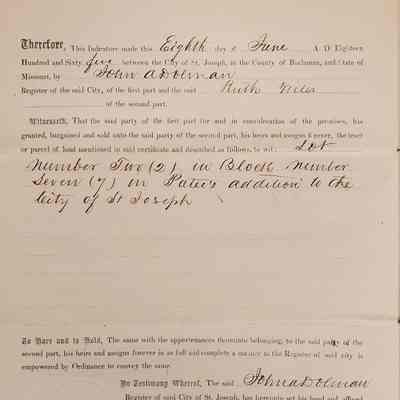 Therefore, This Indenture made this Eighth day of June A. D. Eighteen
Hundred and Sixty five between the City of St. Joseph, in the County of Buchanan, and State of
Missouri, by John A Dolman
Register of the said City, of the first part and the said Ruth
of the second part.
Witnesseth, That the said party of the first part for and in consideration of the premises, has
granted, bargained and sold unto the said party of the second part, his heirs and assigns forever, the tract
or parcel of land mentioned in said certificate and described as follows, to wit: Lot
Number Two (2) in Block Number
Seven (7) in Patee's addition to the
City of St Joseph
To Have and to Hold, The same with the appurtenances thereunto belonging, to the said party of the
second part, his heirs and assigns forever in as full and complete a manner as the Register of said city is
empowered by Ordinance to convey the same.
In Testimony Whereof, The said John A Dolman
Register of said City of St. Joseph, has hereunto set his hand and affixed